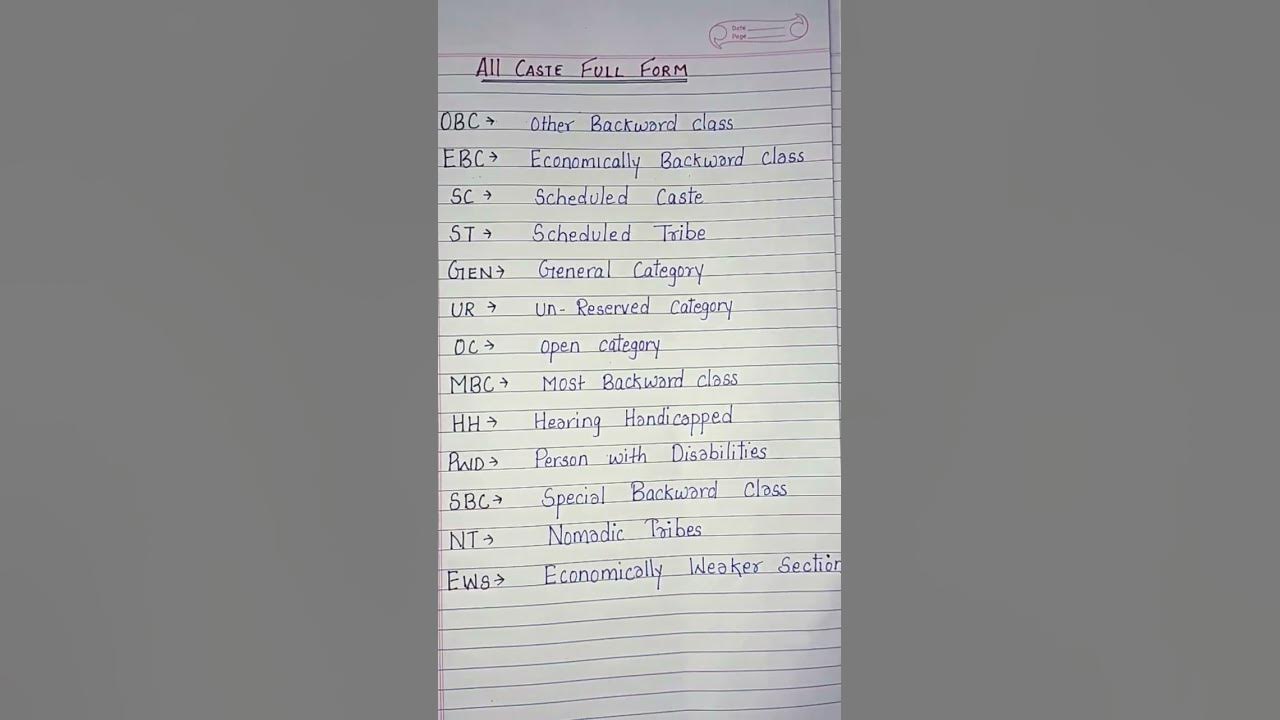 Date
Page
All CASTE FULL FORM
OBC → Other Backward class
EBC → Economically Backward class
SC → Scheduled Caste
ST → Scheduled Tribe
GEN → General Category
UR → Un-Reserved Category
OC → Open category
MBC → Most Backward class
HH → Hearing Handicapped
PWD → Person with Disabilities
SBC → Special Backward Class
NT → Nomadic Tribes
EWS → Economically Weaker Section